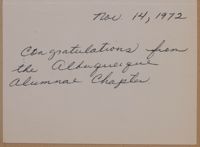 Nov. 14, 1972
Congratulations from
the Albuquerque
Alumnae Chapter